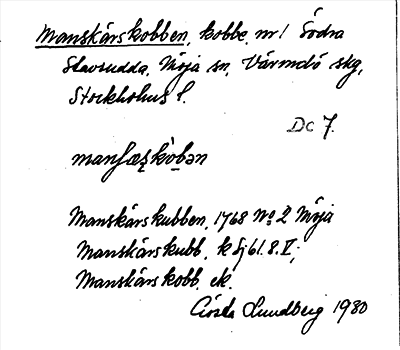 Manskärskobben, kobbe, nr 1 Södra
Stavsudda, Möja sn, Värmdö skg,
Stockholms l.
Dc 7.
manʃæʂkòbən
Manskärskubben, 1768 No 2 Möja
Manskärskubb, k Sj 61.8.V;
Manskärskobb, ek.
Gösta Lundberg 1980